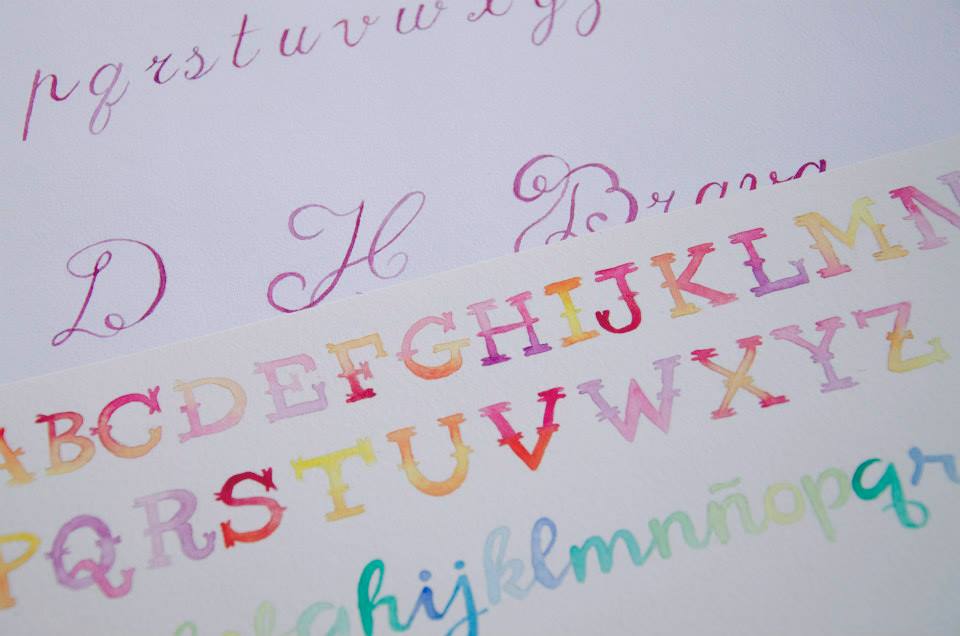 p q r s t u v w x y z
D H Brava
A B C D E F G H I J K L M N
P Q R S T U V W X Y Z
g h i j k l m n ñ o p q r